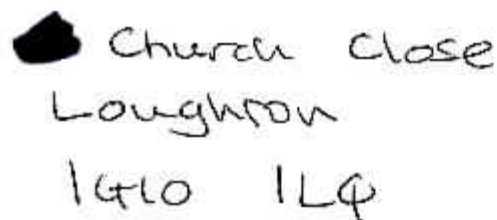 Church Close
Loughton
IG10 1LQ